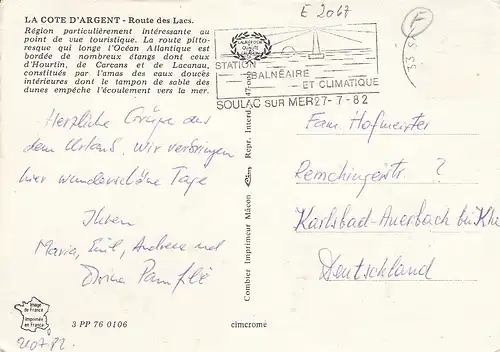 E 2067
F
LA COTE D'ARGENT - Route des Lacs.
Région particulièrement intéressante au
point de vue touristique. La route pitto-
resque qui longe l'Océan Atlantique est
bordée de nombreux étangs dont ceux
d'Hourtin, de Carcans et de Lacanau,
constitués par l'amas des eaux douces
intérieures dont le tampon de sable des
dunes empêche l'écoulement vers la mer.
STATION
BALNÉAIRE
ET CLIMATIQUE
SOULAC SUR MER 27-7-82
33
Herzliche Grüße aus
dem Urlaub. Wir verbringen
hier wunderschöne Tage
Ihren
Maria, Emil, Andreas und
Fam. Hofmeister
Remchingerstr. ?
Karlsbad-Auerbach bei
Deutschland
Combier Imprimeur Mâcon
Repr. Interd.
Image
de France
Imprimée
en France
3 PP 76 0106
cimcrome